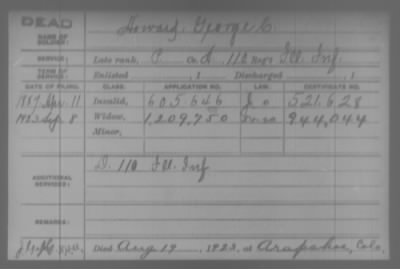 DEAD
NAME OF SOLDIER: Howard, George C.
SERVICE: Late rank, P Co. A, 110 Reg't Ill. Inf.
TERM OF SERVICE: Enlisted , 1 Discharged , 1
DATE OF FILING. CLASS. APPLICATION NO. LAW. CERTIFICATE NO.
1887 Apr. 11 Invalid, 605.646 521.628
1923 Sep. 8 Widow, 1,209,750 944,044
Minor,
ADDITIONAL SERVICES: D. 110 Ill. Inf
REMARKS:
Died Aug 19, 1923, at Arapahoe, Colo.